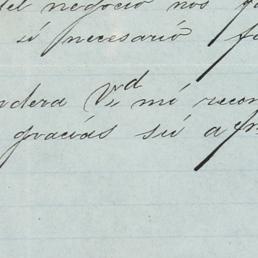 del negocio nos
si necesario
Vrd mi recon
gracias su a